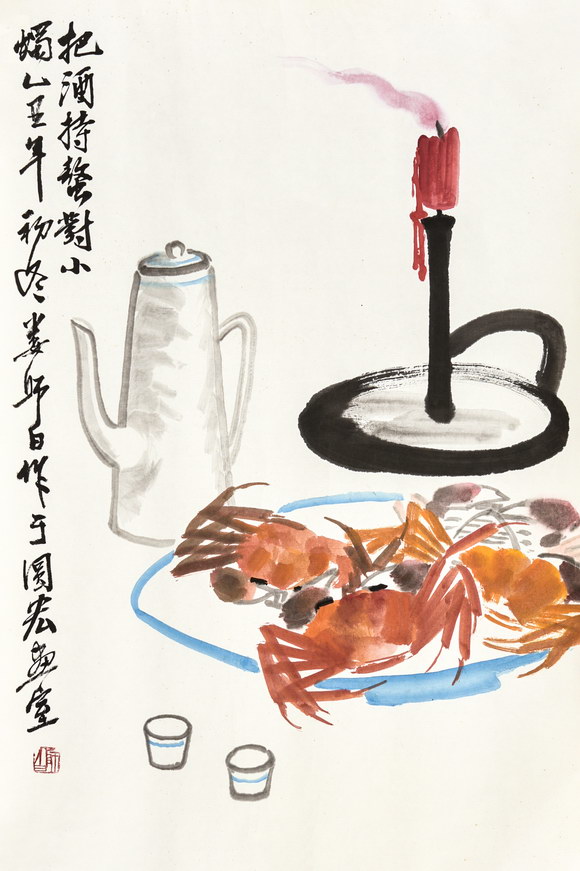 把酒持螯對小
燭乙丑年初冬婁師白作于圓宏畫室